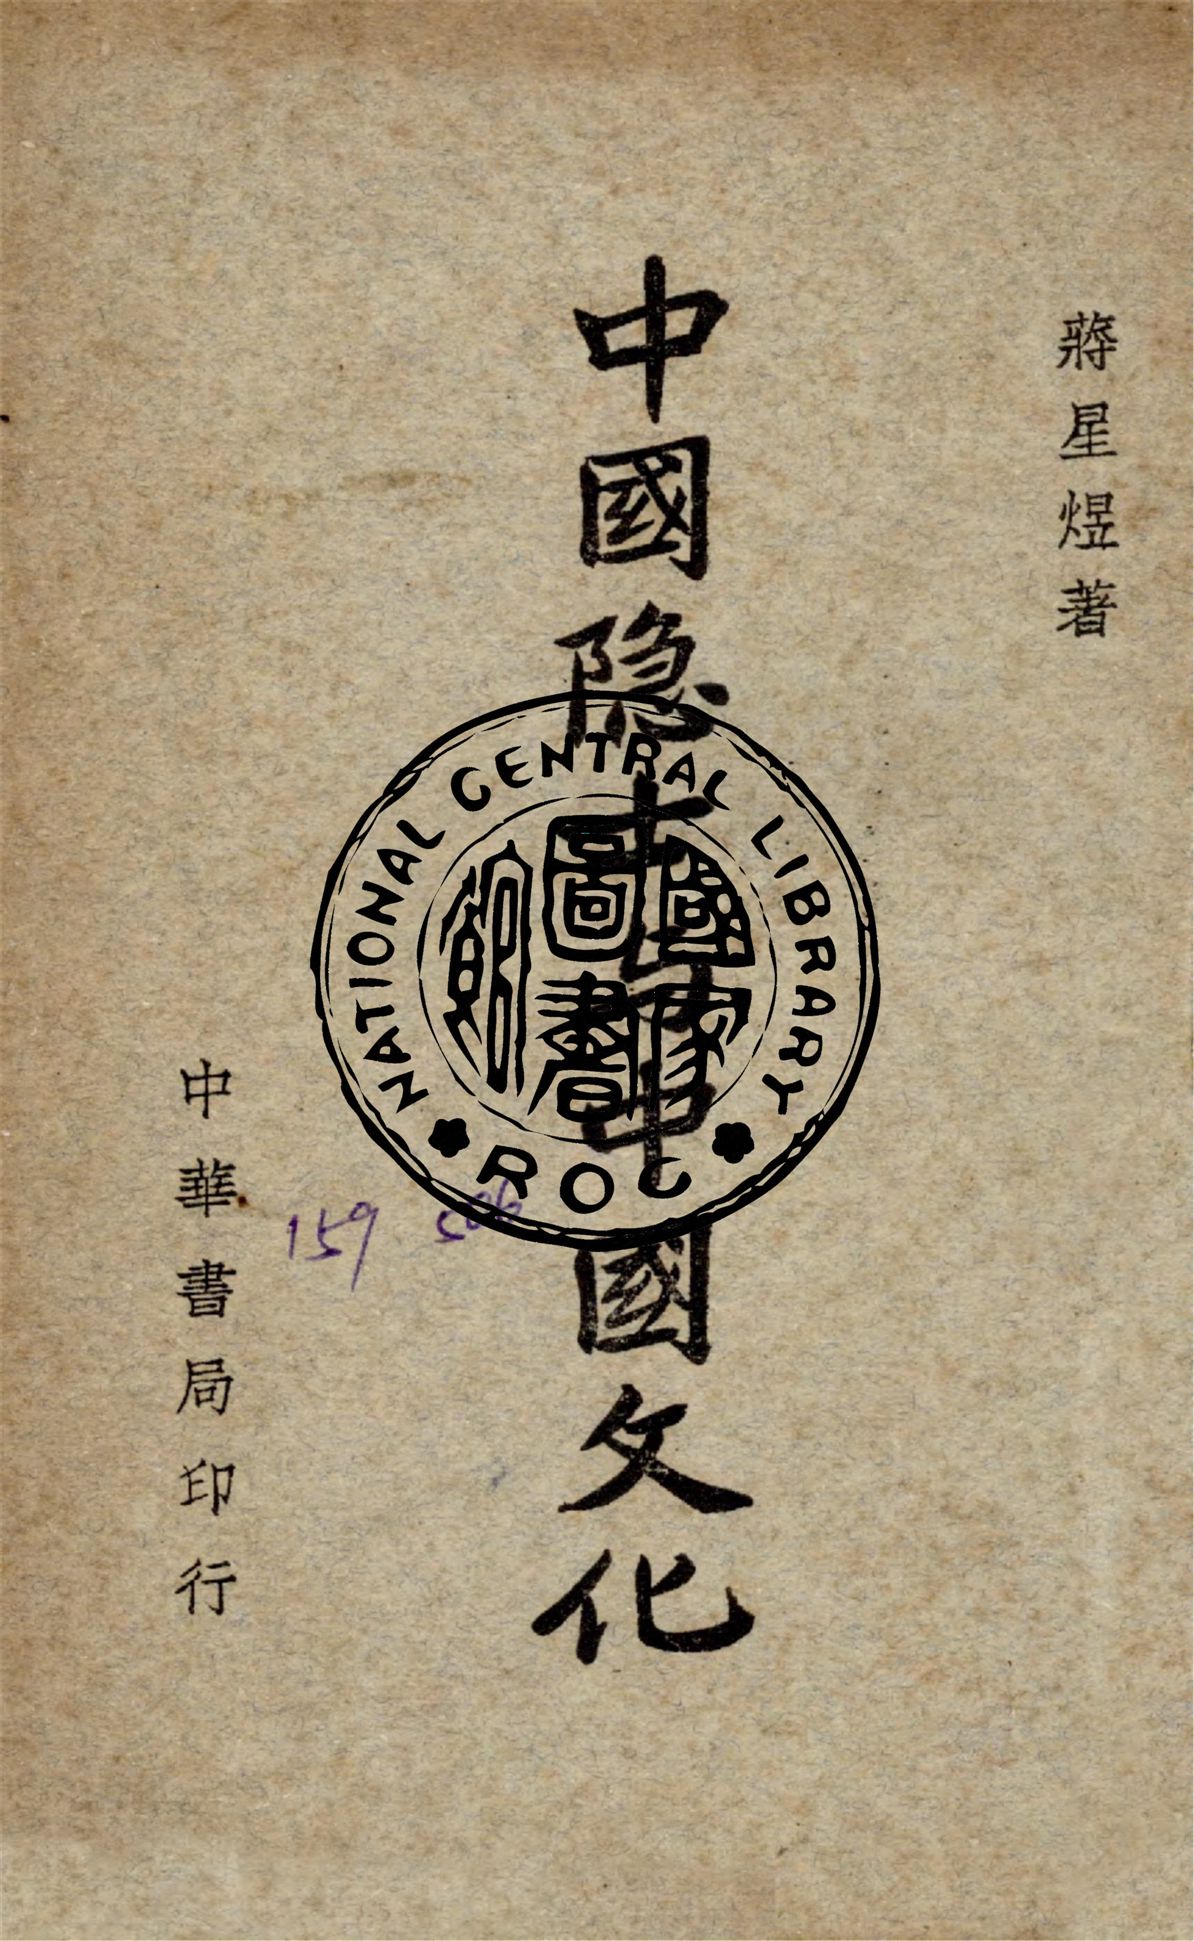 蔣星煜著
中國隐士與中國文化
中華書局印行
NATIONAL CENTRAL LIBRARY
ROC
國家
圖書
館
159 506